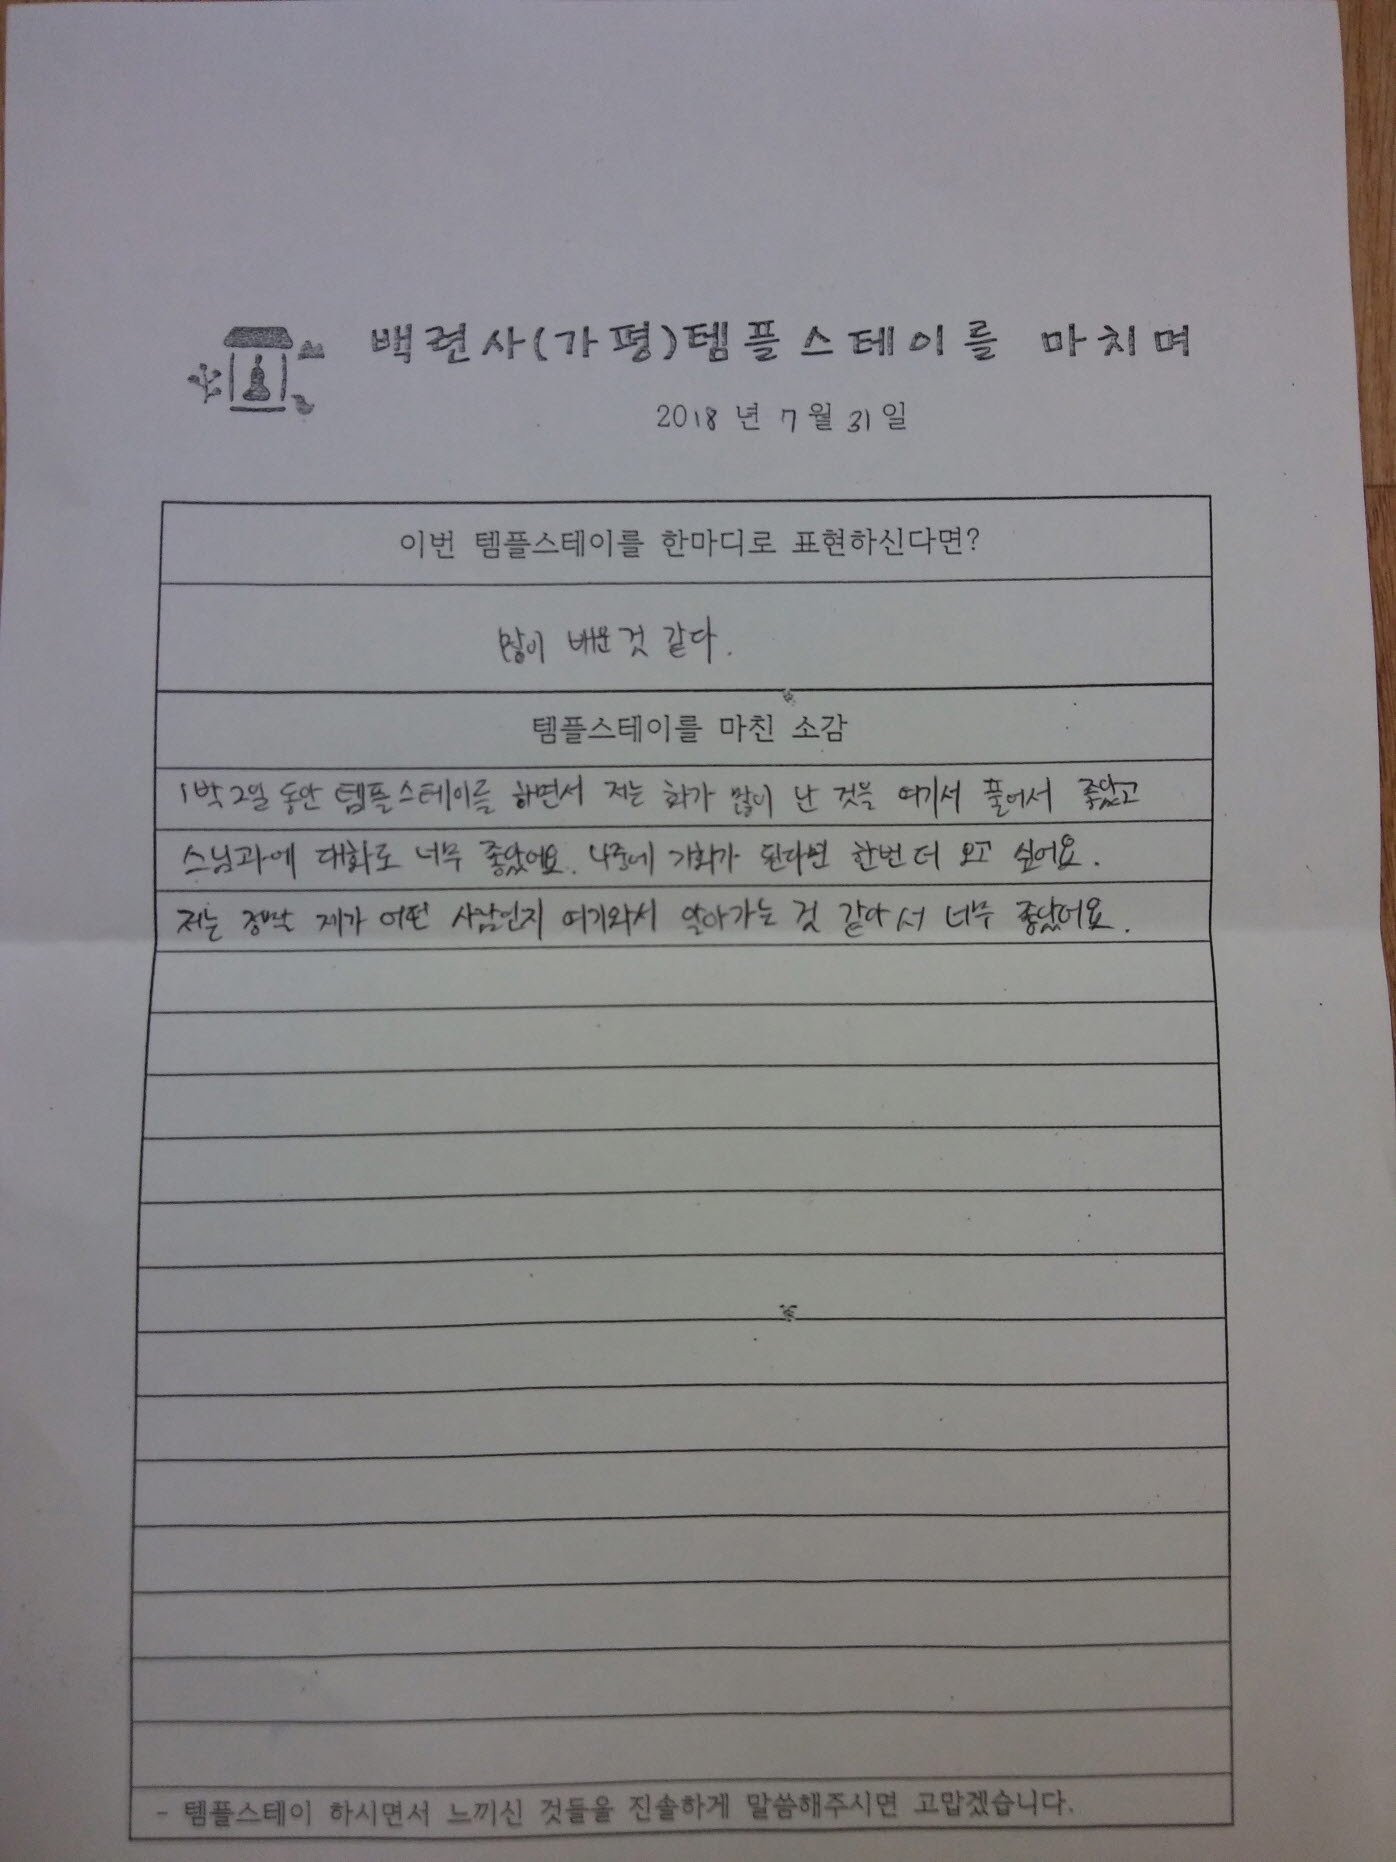 백련사(가평)템플스테이를 마치며
2018 년 7 월 31 일
이번 템플스테이를 한마디로 표현하신다면?
많이 배운것 같다.
템플스테이를 마친 소감
1박2일 동안 템플스테이를 하면서 저는 화가 많이 난 것을 여기서 풀어서 좋았고
스님과에 대화도 너무 좋았어요. 나중에 기회가 된다면 한번 더 오고 싶어요.
저는 정말 제가 어떤 사람인지 여기와서 알아가는 것 같아서 너무 좋았어요.
- 템플스테이 하시면서 느끼신 것들을 진솔하게 말씀해주시면 고맙겠습니다.